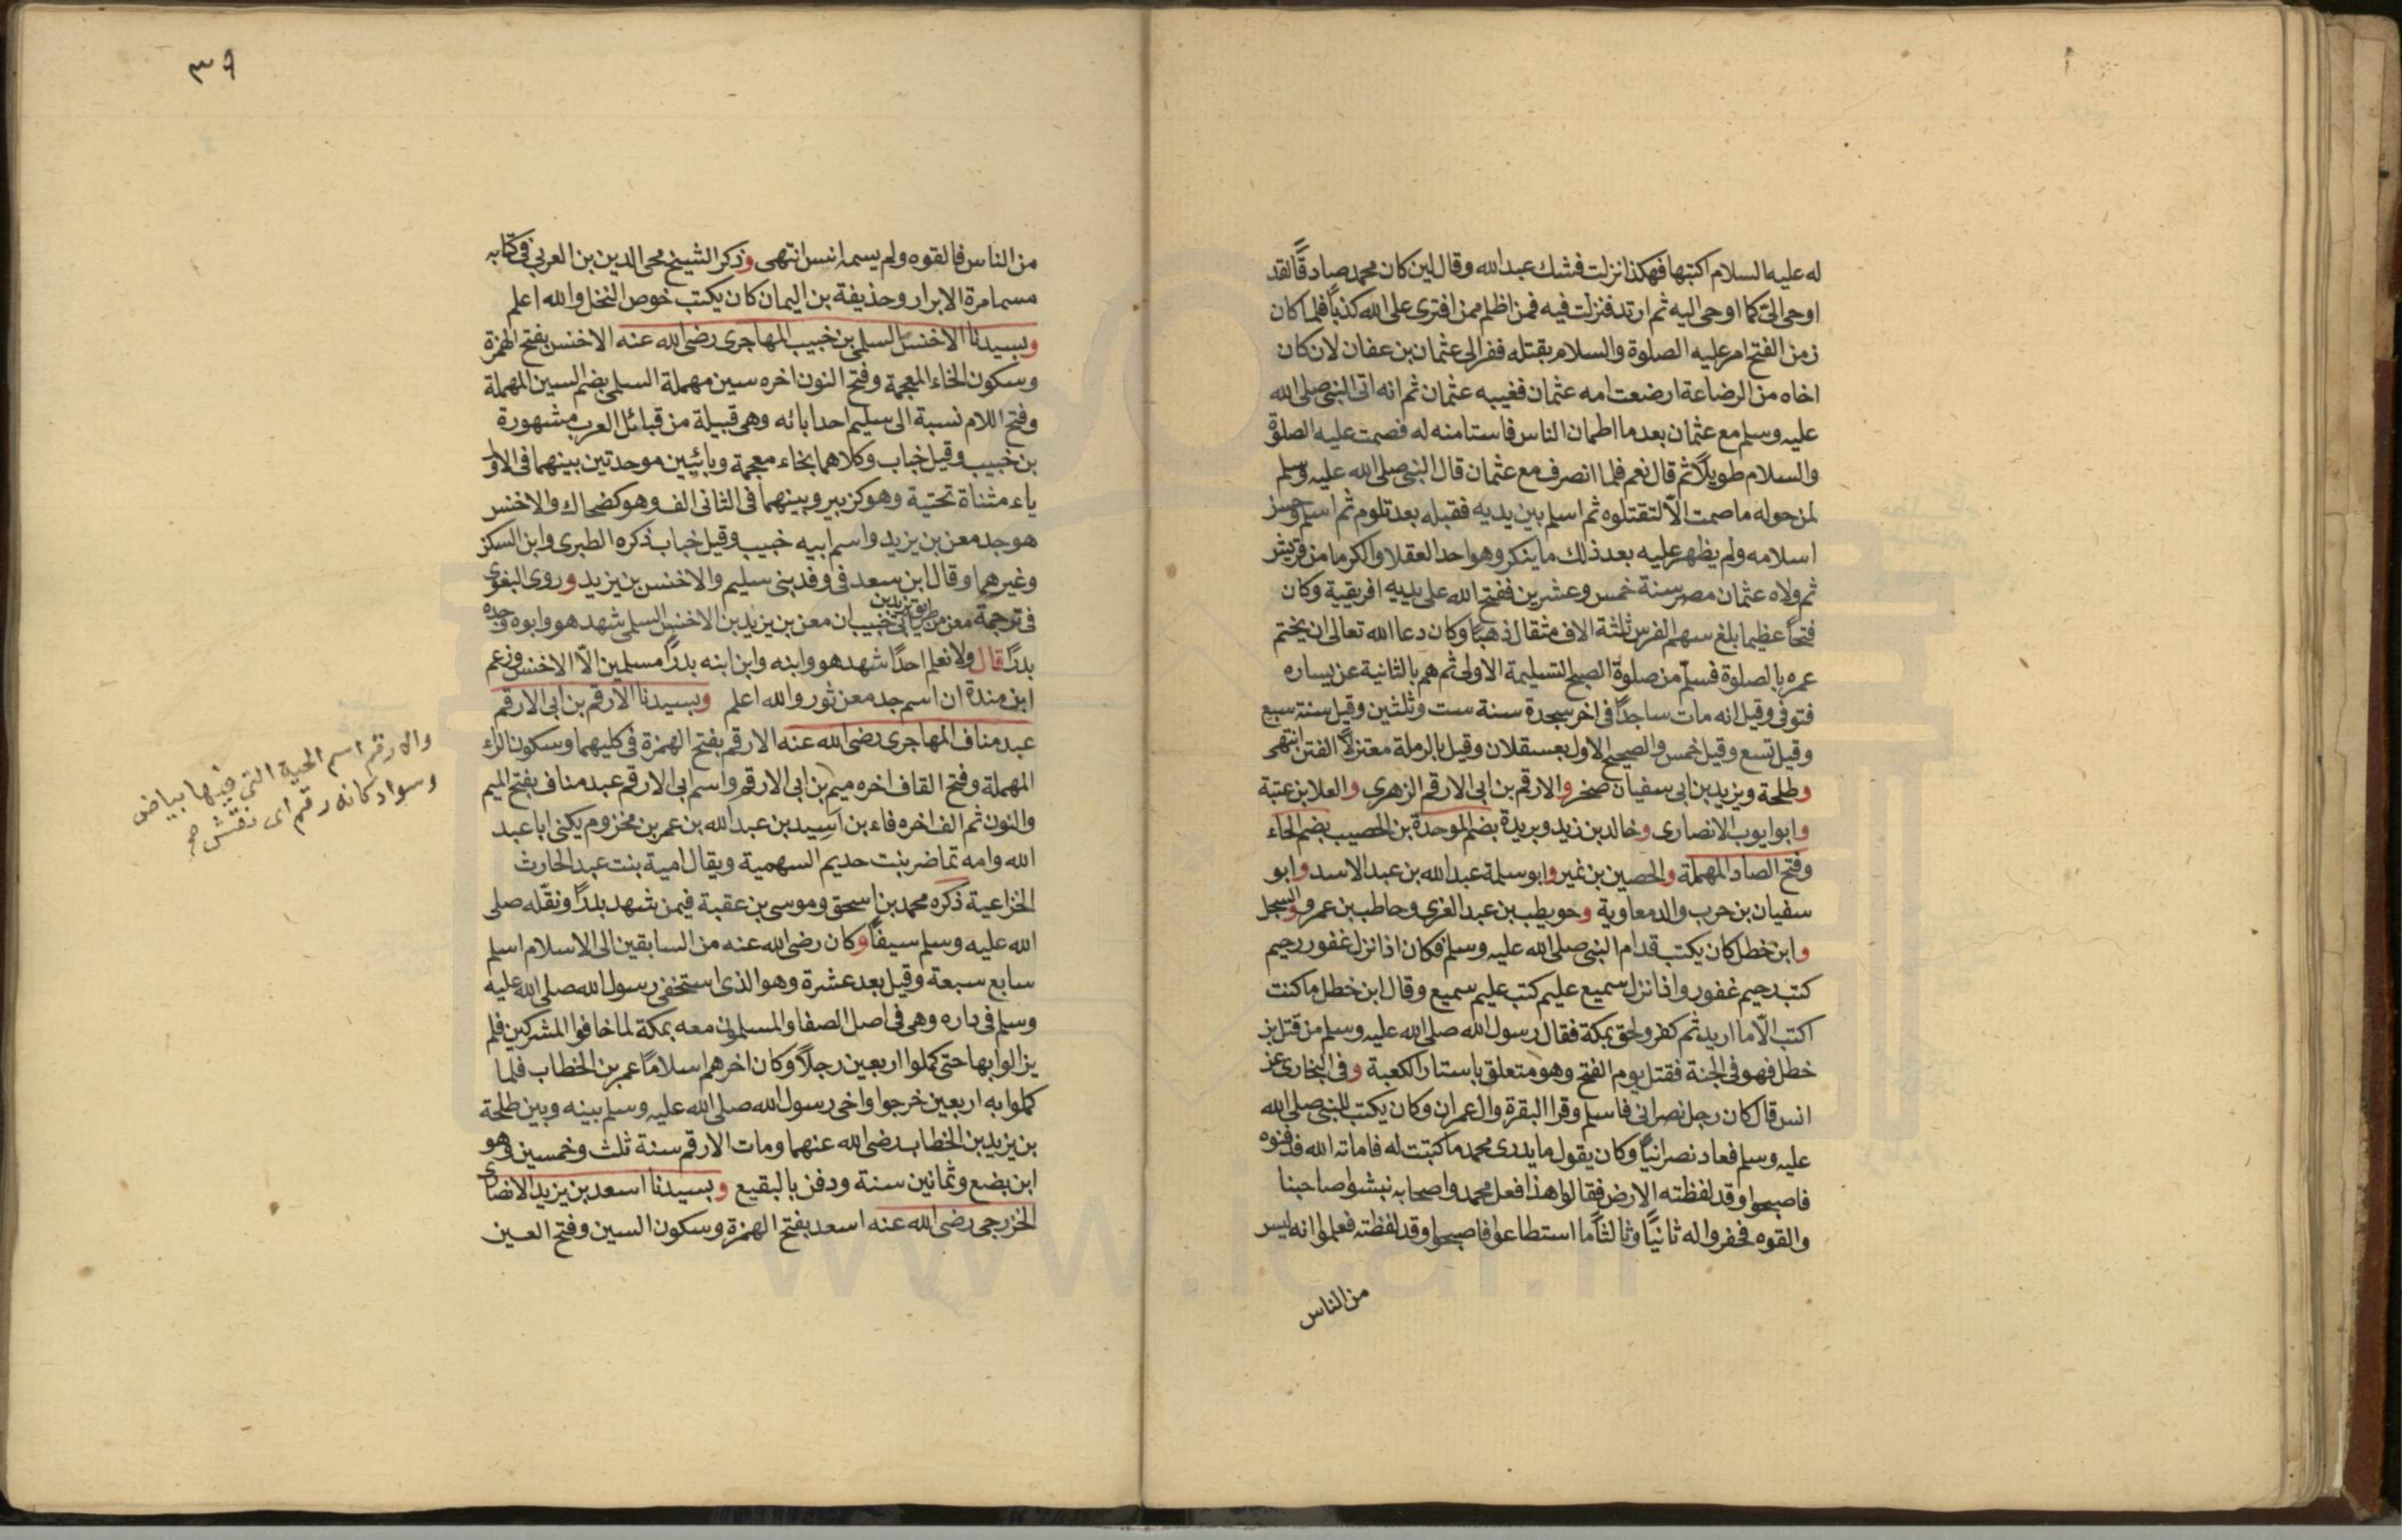 له عليه السلام اكتبها فهكذا نزلت فشك عبد الله وقال لين كان محمد صادقًا لقد
اوحى الىّ كما اوحى اليه ثم ارتد فنزلت فيه فمن اظلم ممن افترى على الله كذبًا فلما كان
زمن الفتح امر عليه الصلوة والسلام بقتله ففر الى عثمان بن عفان لان كان
اخاه من الرضاعة ارضعت امه عثمان فغيبه عثمان ثم انه اتى النبى صلى الله
عليه وسلم مع عثمان بعد ما اطمان الناس فاستامنه له فصمت عليه الصلوة
والسلام طويلًا ثم قال نعم فلما انصرف مع عثمان قال النبى صلى الله عليه وسلم
لمن حوله ما صمت الّا لتقتلوه ثم اسلم بين يديه فقبله بعد تلوم ثم اسلم وحسن
اسلامه ولم يظهر عليه بعد ذلك ما ينكر وهو احد العقلا والكرما من قريش
ثم ولاه عثمان مصر سنة خمس وعشرين ففتح الله على يديه افريقية وكان
فتحًا عظيما بلغ سهم الفرس ثلثة الاف مثقال ذهبًا وكان دعا الله تعالى ان يختم
عمره بالصلوة فسلّم من صلوة الصبح التسليمة الاولى ثم هم بالثانية عن يساره
فتوفى وقيل انه مات ساجدًا فى اخر سجدة سنة ست وثلثين وقيل سنة سبع
وقيل تسع وقيل خمس والصحيح الاول بعسقلان وقيل بالرملة معتزلًا الفتن انتهى
وطلحة ويزيد بن ابى سفيان صخر والارقم بن ابى الارقم الزهرى والعلا بن عتبة
وابو ايوب الانصارى وخالد بن زيد وبريدة بضم الموحدة بن الحصيب بضم الحاء
وفتح الصاد المهملة والحصين بن نمير وابو سلمة عبد الله بن عبد الاسد وابو
سفيان بن حرب والد معاوية وحويطب بن عبد العزى وحاطب بن عمرو والسجل
وابن خطل كان يكتب قدام النبى صلى الله عليه وسلم فكان اذا نزل غفور رحيم
كتب رحيم غفور واذا نزل سميع عليم كتب عليم سميع وقال ابن خطل ما كنت
اكتب الّا ما اريد ثم كفر ولحق بمكة فقال رسول الله صلى الله عليه وسلم من قتل بن
خطل فهو فى الجنة فقتل يوم الفتح وهو متعلق باستار الكعبة وفى البخارى عن
انس قال كان رجل نصرانى فاسلم وقرا البقرة وال عمران وكان يكتب للنبى صلى الله
عليه وسلم فعاد نصرانيًا وكان يقول ما يدرى محمد ما كتبت له فاماته الله فدفنوه
فاصبحوا وقد لفظته الارض فقالوا هذا فعل محمد واصحابه نبشوا صاحبنا
والقوه فحفروا له ثانيًا وثالثًا ما استطاعوا فاصبحوا وقد لفظته فعلموا انه ليس
من الناس
٣٩
من الناس فالقوه ولم يسمه انس انتهى وذكر الشيخ محى الدين بن العربى فى كتابه
مسامرة الابرار وحذيفة بن اليمان كان يكتب خوص النخل والله اعلم
وبسيدنا الاخنس السلمى بن خبيب المهاجرى رضى الله عنه الاخنس بفتح الهمزة
وسكون الخاء المعجمة وفتح النون اخره سين مهملة السلمى بضم السين المهملة
وفتح اللام نسبة الى سليم احد ابائه وهى قبيلة من قبائل العرب مشهورة
بن خبيب وقيل خباب وكلاهما بخاء معجمة وبائيين موحدتين بينهما فى الاول
ياء مثناة تحتية وهو كزبير وبينهما فى الثانى الف وهو كضحاك والاخنس
هو جد معن بن يزيد واسم ابيه خبيب وقيل خباب ذكره الطبرى وابن السكن
وغيرهما وقال ابن سعد فى وفد بنى سليم والاخنس بن يزيد وروى البغوى
فى ترجمة معن من طريق يزيد بن ابى خبيب ان معن بن يزيد بن الاخنس السلمى شهد هو وابوه وجده
بدرًا قال ولا نعلم احدًا شهد هو وابنه وابن ابنه بدرًا مسلمين الّا الاخنس وزعم
ابن مندة ان اسم جد معن ثور والله اعلم وبسيدنا الارقم بن ابى الارقم
عبد مناف المهاجرى رضى الله عنه الارقم بفتح الهمزة فى كليهما وسكون الراء
المهملة وفتح القاف اخره ميم بن ابى الارقم واسم ابى الارقم عبد مناف بفتح الميم
والنون ثم الف اخره فاء بن اسيد بن عبد الله بن عمر بن مخزوم يكنى ابا عبد
الله وامه تماضر بنت حديم السهمية ويقال امية بنت عبد الحارث
الخزاعية ذكره محمد بن اسحق وموسى بن عقبة فيمن شهد بدرًا ونفّله صلى
الله عليه وسلم سيفًا وكان رضى الله عنه من السابقين الى الاسلام اسلم
سابع سبعة وقيل بعد عشرة وهو الذى استخفى رسول الله صلى الله عليه
وسلم فى داره وهى فى اصل الصفا والمسلمون معه بمكة لما خافوا المشركين فلم
يزالوا بها حتى كملوا اربعين رجلًا وكان اخرهم اسلامًا عمر بن الخطاب فلما
كملوا به اربعين خرجوا واخى رسول الله صلى الله عليه وسلم بينه وبين طلحة
بن يزيد بن الخطاب رضى الله عنهما ومات الارقم سنة ثلث وخمسين وهو
ابن بضع وثمانين سنة ودفن بالبقيع وبسيدنا اسعد بن يزيد الانصارى
الخزرجى رضى الله عنه اسعد بفتح الهمزة وسكون السين وفتح العين
والارقم اسم الحية التى فيها بياض
وسواد كانه رقم اى نقش